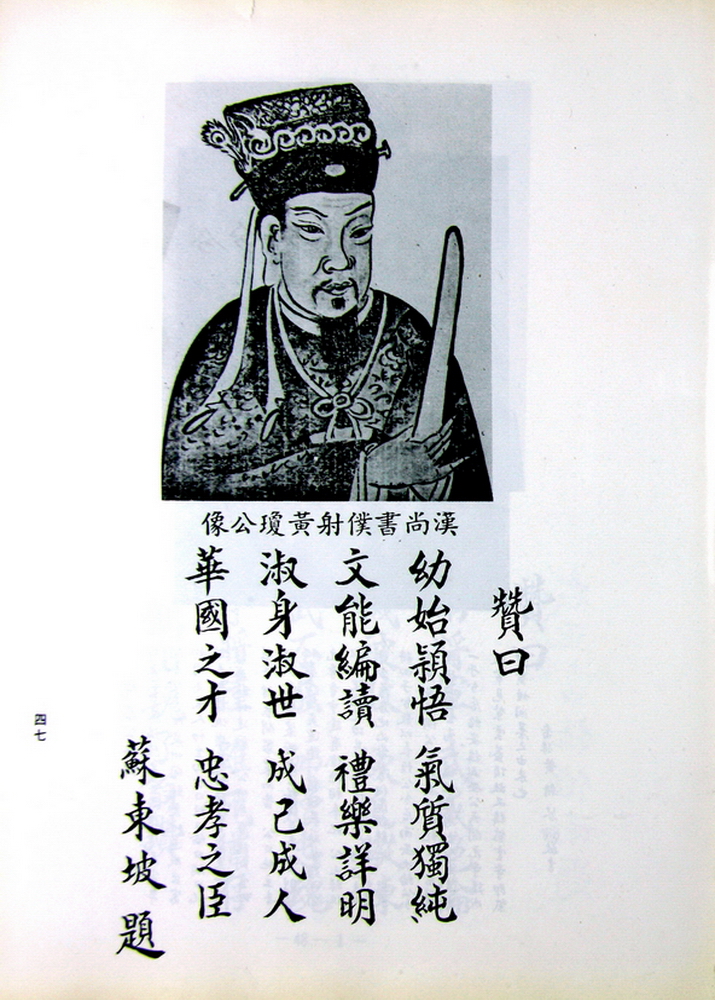 漢尚書僕射黃瓊公像
贊曰
幼始穎悟 氣質獨純
文能編讀 禮樂詳明
淑身淑世 成己成人
華國之才 忠孝之臣
蘇東坡 題
四七